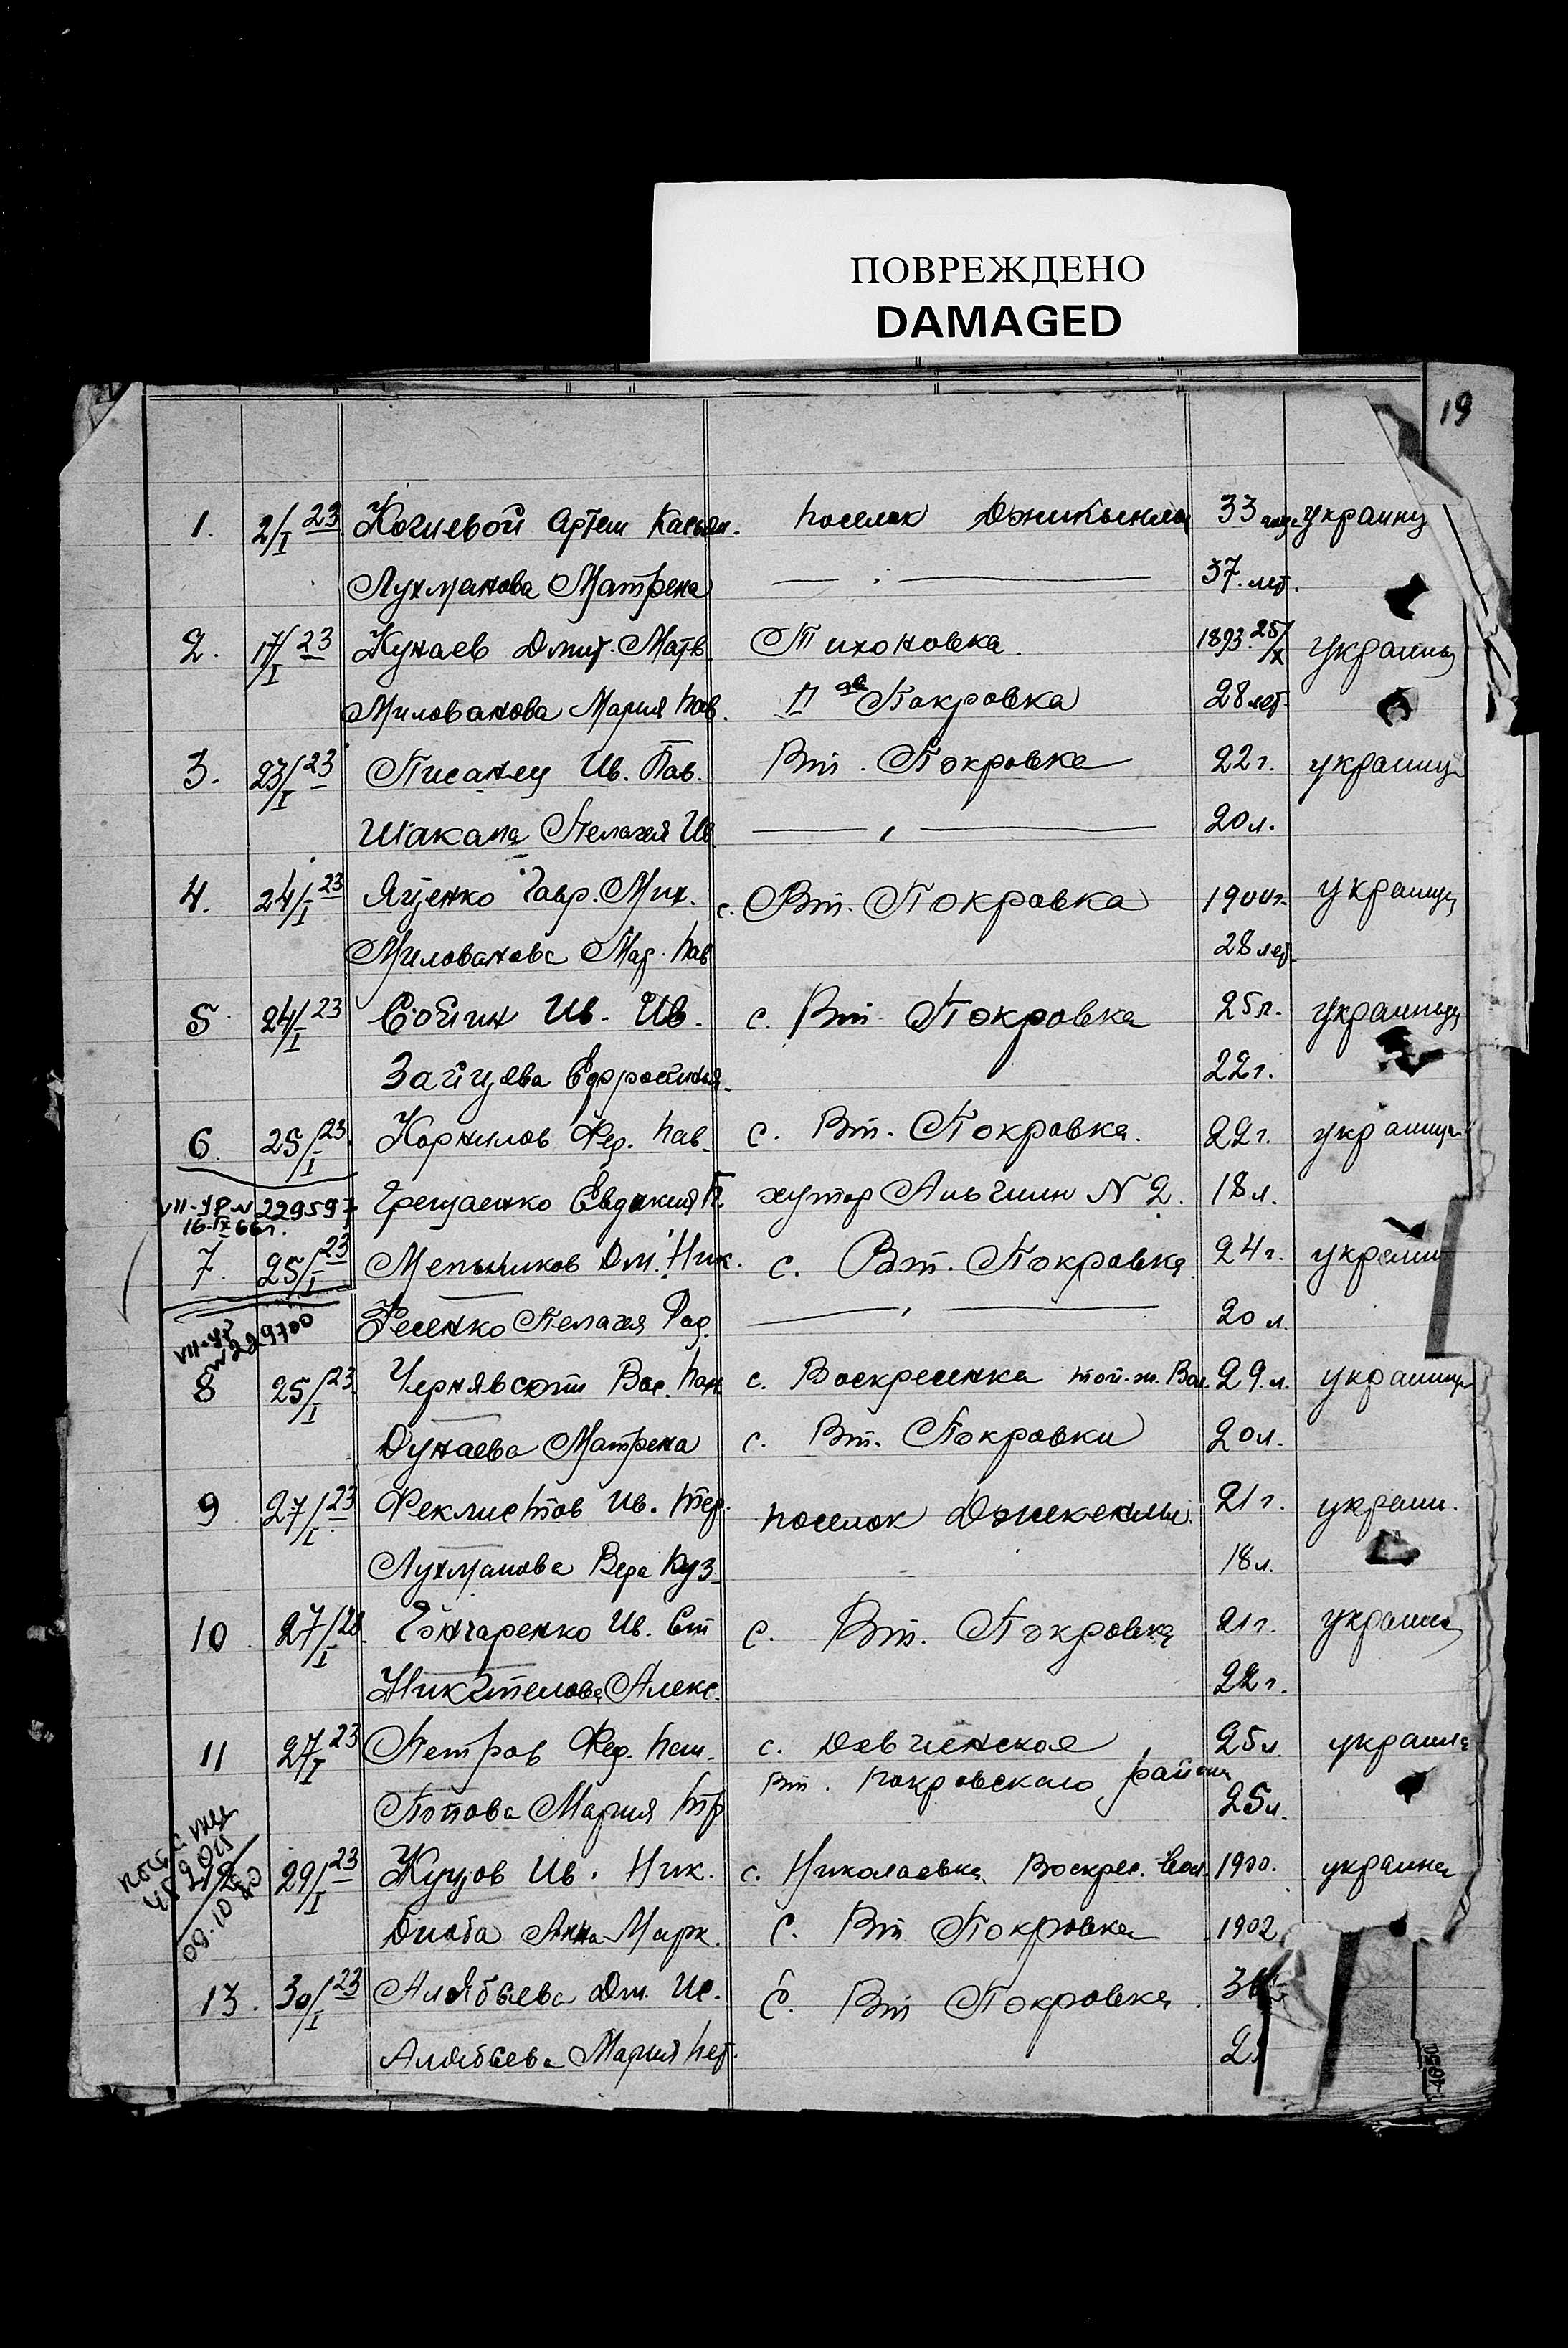 ПОВРЕЖДЕНО
DAMAGED
19
1. 2/I 23 Артем Касьян. поселок 33 года украинц
Лухманова Матрена — " — 37. лет.
2. 17/I 23 Кунаев Дмит. Матв. Тихоновка. 1893 25/X украинц
Милованова Мария Пав. II ая Покровка 28 лет.
3. 23/I 23 Писанец Ив. Пав. Вт. Покровка 22 г. украинц
Пелагея Ив. — " — 20 л.
4. 24/I 23 Яценко Гавр. Мих. с. Вт. Покровка 1900 г. украинц
Милованова Мар. Пав 28 лет.
5. 24/I 23 Ив. Ив. с. Вт. Покровка 25 л. украинц
Зайцева Ефросиния 22 г.
6. 25/I 23 Корнилов Фед. Пав. с. Вт. Покровка. 22 г. украинц
VII-УР N 229597 Евдокия П. хутор N 2. 18 л.
16.IX 66 г.
7. 25/I 23 Мельников Дм. Ник. с. Вт. Покровка. 24 г. украин
Фесенко Пелагея Род. — " — 20 л.
VII-УР
N 229700
8 25/I 23 Вас. Пан с. Воскресенка той-ж. Вол. 29. л. украинц
Дунаева Матрена с. Вт. Покровки 20 л.
9 27/I 23 Феклистов Ив. поселок 21 г. украин.
Лухманова Вера Куз. 18 л.
10. 27/I 23 Гончаренко Ив. Ст с. Вт. Покровка 21 г. украин
Алекс. 22 г.
11 27/I 23 Петров Фед. с. 25 л. украин
Вт. Покровского района
Попова Мария 25 л.
29/I 23 Ив. Ник. с. Николаевка Воскрес. Вол. 1900. украин
09.10
Анна Марк. с. Вт Покровка 1902
13. 30/I 23 Алябьева Дм. Ис. с. Вт Покровка.
Алябьева Мария Пет.
4050